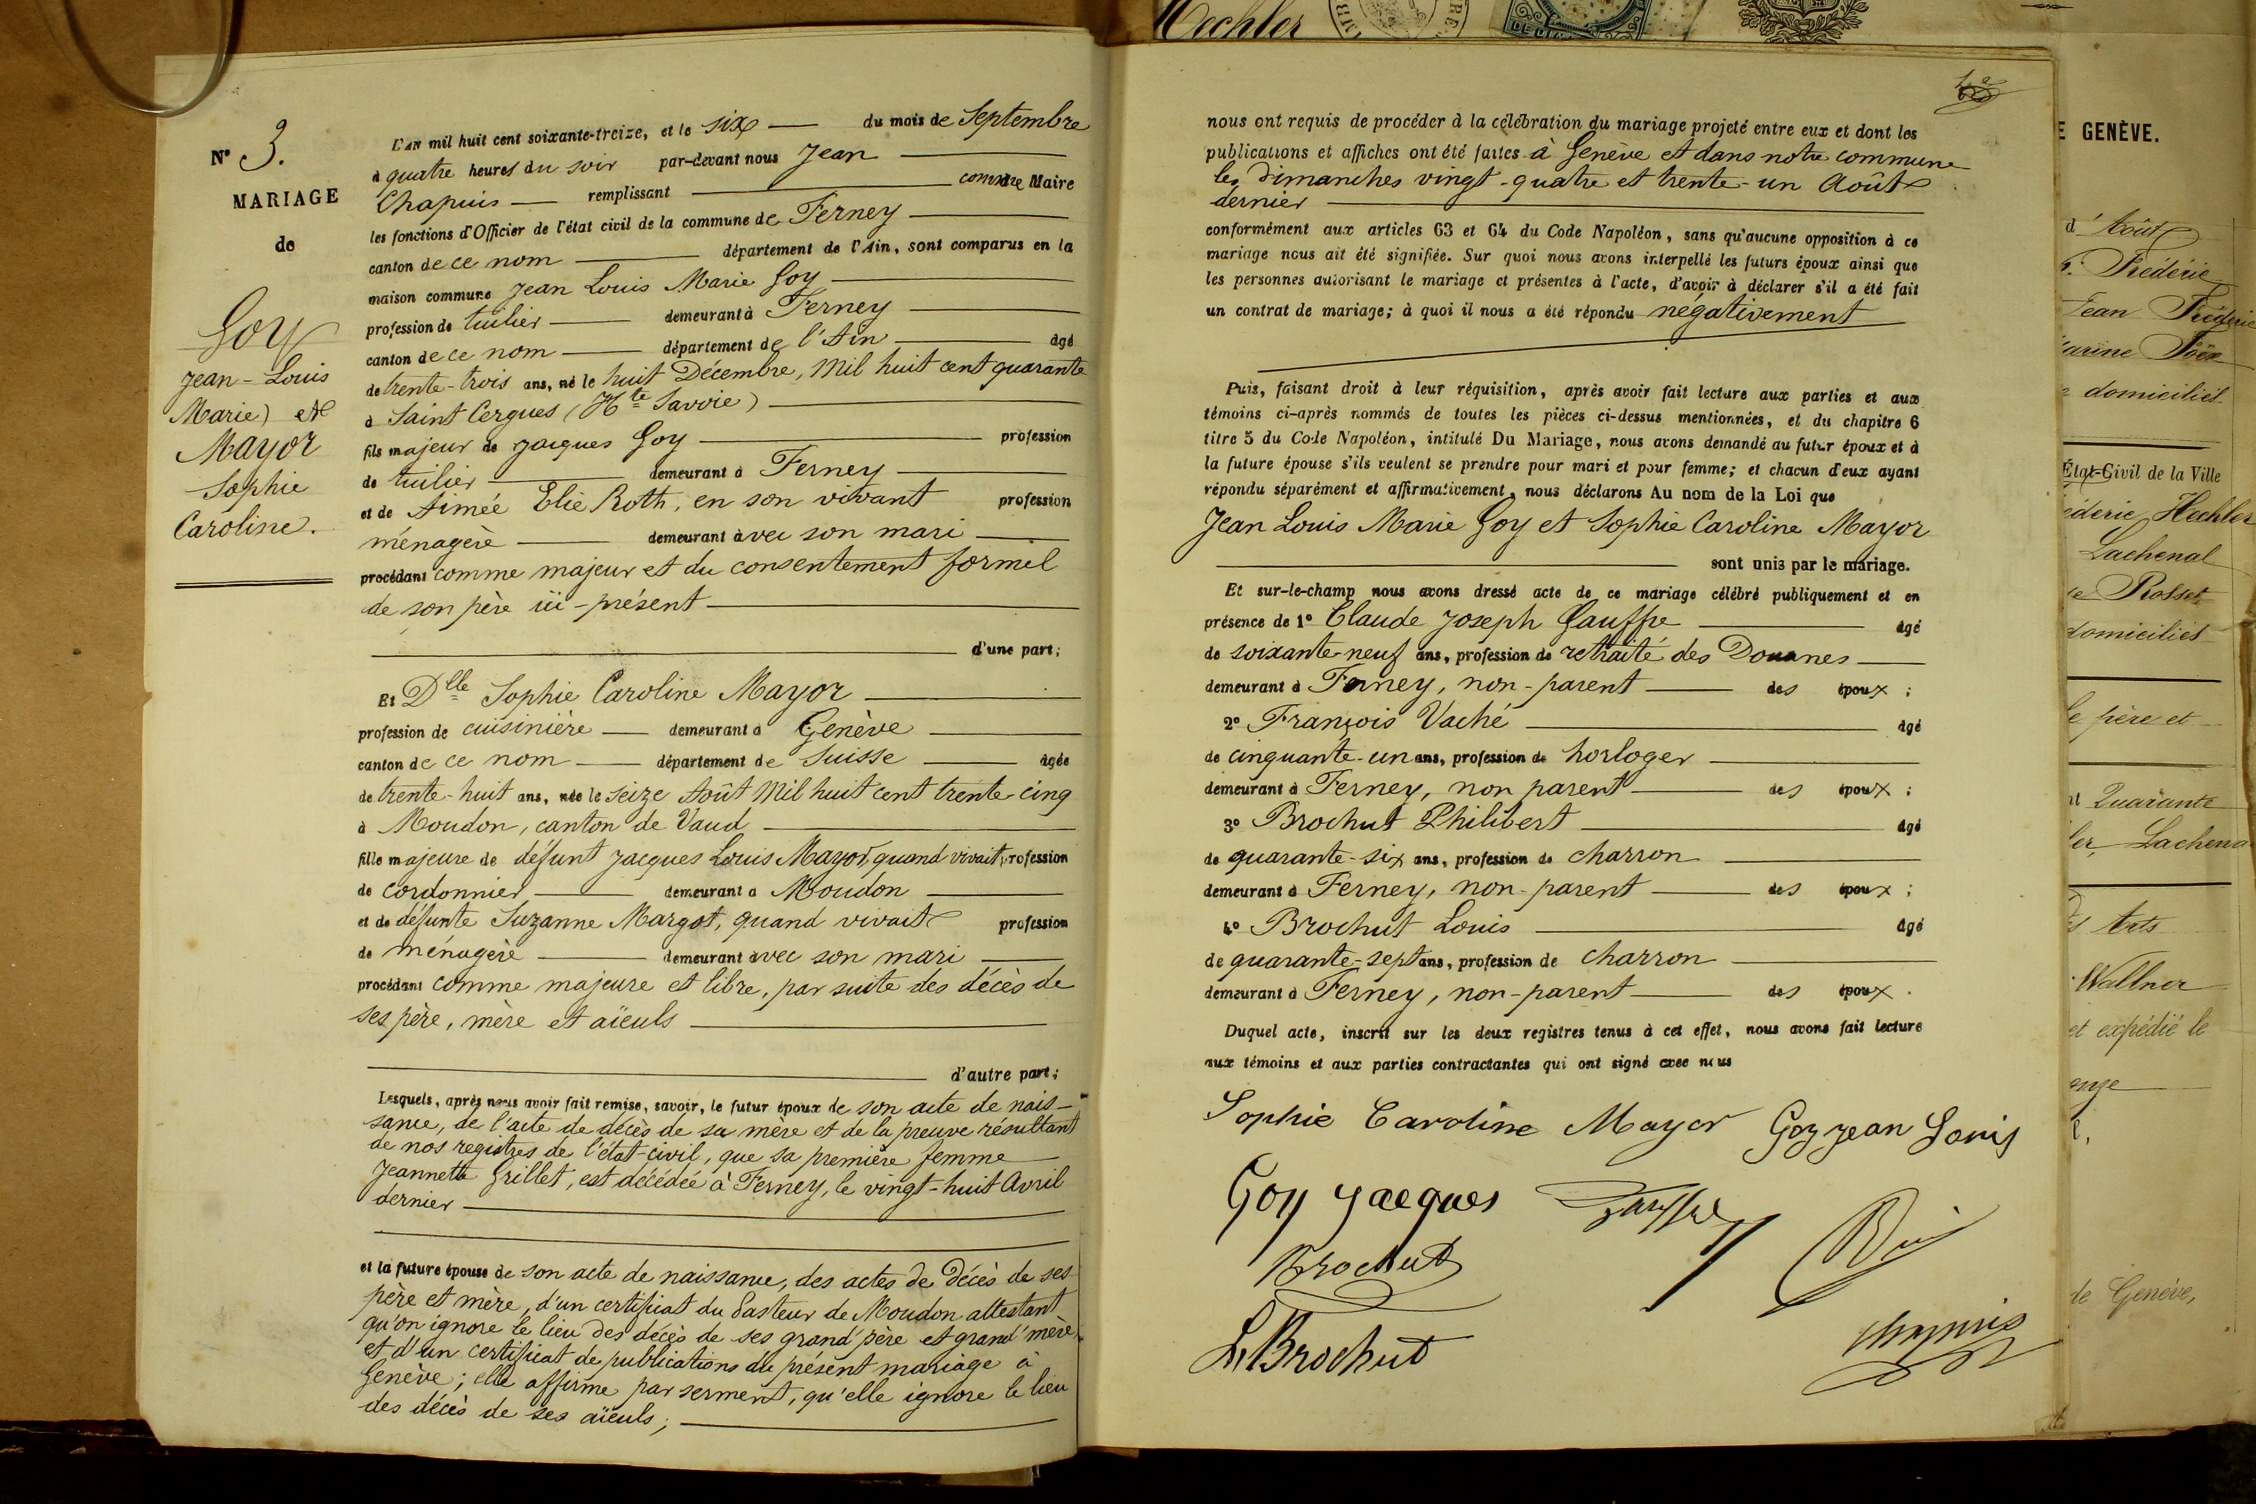 Nº 3.
MARIAGE
de
Goy
Jean-Louis
Marie) et
Mayor
Sophie
Caroline.
L'AN mil huit cent soixante-treize, et le six du mois de Septembre
à quatre heures du soir par-devant nous Jean
Chapuis remplissant comme Maire
les fonctions d'Officier de l'état civil de la commune de Ferney
canton de ce nom département de l'Ain, sont comparus en la
maison commune Jean Louis Marie Goy
profession de tuilier demeurant à Ferney
canton de ce nom département de l'Ain âgé
de trente-trois ans, né le huit Décembre, Mil huit cent quarante
à Saint Cergues (Hte Savoie)
fils majeur de Jacques Goy profession
de tuilier demeurant à Ferney
et de Aimée Elie Roth, en son vivant profession
ménagère demeurant avec son mari
procédant comme majeur et du consentement formel
de son père ici-présent
d'une part;
Et Dlle Sophie Caroline Mayor
profession de cuisinière demeurant à Genève
canton de ce nom département de Suisse âgée
de trente-huit ans, née le seize Août Mil huit cent trente cinq
à Moudon, canton de Vaud
fille majeure de défunt Jacques Louis Mayor, quand vivait profession
de cordonnier demeurant à Moudon
et de défunte Suzanne Margot, quand vivait profession
de ménagère demeurant avec son mari
procédant comme majeure et libre, par suite des décès de
ses père, mère et aïeuls
d'autre part;
Lesquels, après nous avoir fait remise, savoir, le futur époux de son acte de nais-
sance, de l'acte de décès de sa mère et de la preuve résultant
de nos registres de l'état-civil, que sa première femme
Jeannette Grillet, est décédée à Ferney, le vingt-huit Avril
dernier
et la future épouse de son acte de naissance, des actes de décès de ses
père et mère, d'un certificat du Pasteur de Moudon attestant
qu'on ignore le lieu des décès de ses grand'père et grand'mère
et d'un certificat de publications du présent mariage à
Genève; elle affirme par serment, qu'elle ignore le lieu
des décès de ses aïeuls;
nous ont requis de procéder à la célébration du mariage projeté entre eux et dont les
publications et affiches ont été faites à Genève et dans notre commune
les Dimanches vingt-quatre et trente-un Août
dernier
conformément aux articles 63 et 64 du Code Napoléon, sans qu'aucune opposition à ce
mariage nous ait été signifiée. Sur quoi nous avons interpellé les futurs époux ainsi que
les personnes autorisant le mariage et présentes à l'acte, d'avoir à déclarer s'il a été fait
un contrat de mariage; à quoi il nous a été répondu négativement
Puis, faisant droit à leur réquisition, après avoir fait lecture aux parties et aux
témoins ci-après nommés de toutes les pièces ci-dessus mentionnées, et du chapitre 6
titre 5 du Code Napoléon, intitulé Du Mariage, nous avons demandé au futur époux et à
la future épouse s'ils veulent se prendre pour mari et pour femme; et chacun d'eux ayant
répondu séparément et affirmativement, nous déclarons Au nom de la Loi que
Jean Louis Marie Goy et Sophie Caroline Mayor
sont unis par le mariage.
Et sur-le-champ nous avons dressé acte de ce mariage célébré publiquement et en
présence de 1º Claude Joseph Gauffre âgé
de soixante-neuf ans, profession de retraité des Douanes
demeurant à Ferney, non-parent des époux;
2º François Vaché âgé
de cinquante-un ans, profession de horloger
demeurant à Ferney, non parent des époux;
3º Brochut Philibert âgé
de quarante-six ans, profession de charron
demeurant à Ferney, non-parent des époux;
4º Brochut Louis âgé
de quarante-sept ans, profession de charron
demeurant à Ferney, non-parent des époux.
Duquel acte, inscrit sur les deux registres tenus à cet effet, nous avons fait lecture
aux témoins et aux parties contractantes qui ont signé avec nous
Sophie Caroline Mayor Goy Jean Louis
Goy Jacques Gauffre
Brochut
L. Brochut
Chapuis
Hechler
E GENÈVE.
d'Août
Frédéric
Jean Frédéric
domiciliés
État-Civil de la Ville
Hechler
Lachenal
Rosset
domiciliés
le père et
Quarante
Lachena
Arts
Wallner
et expédié le
de Genève,